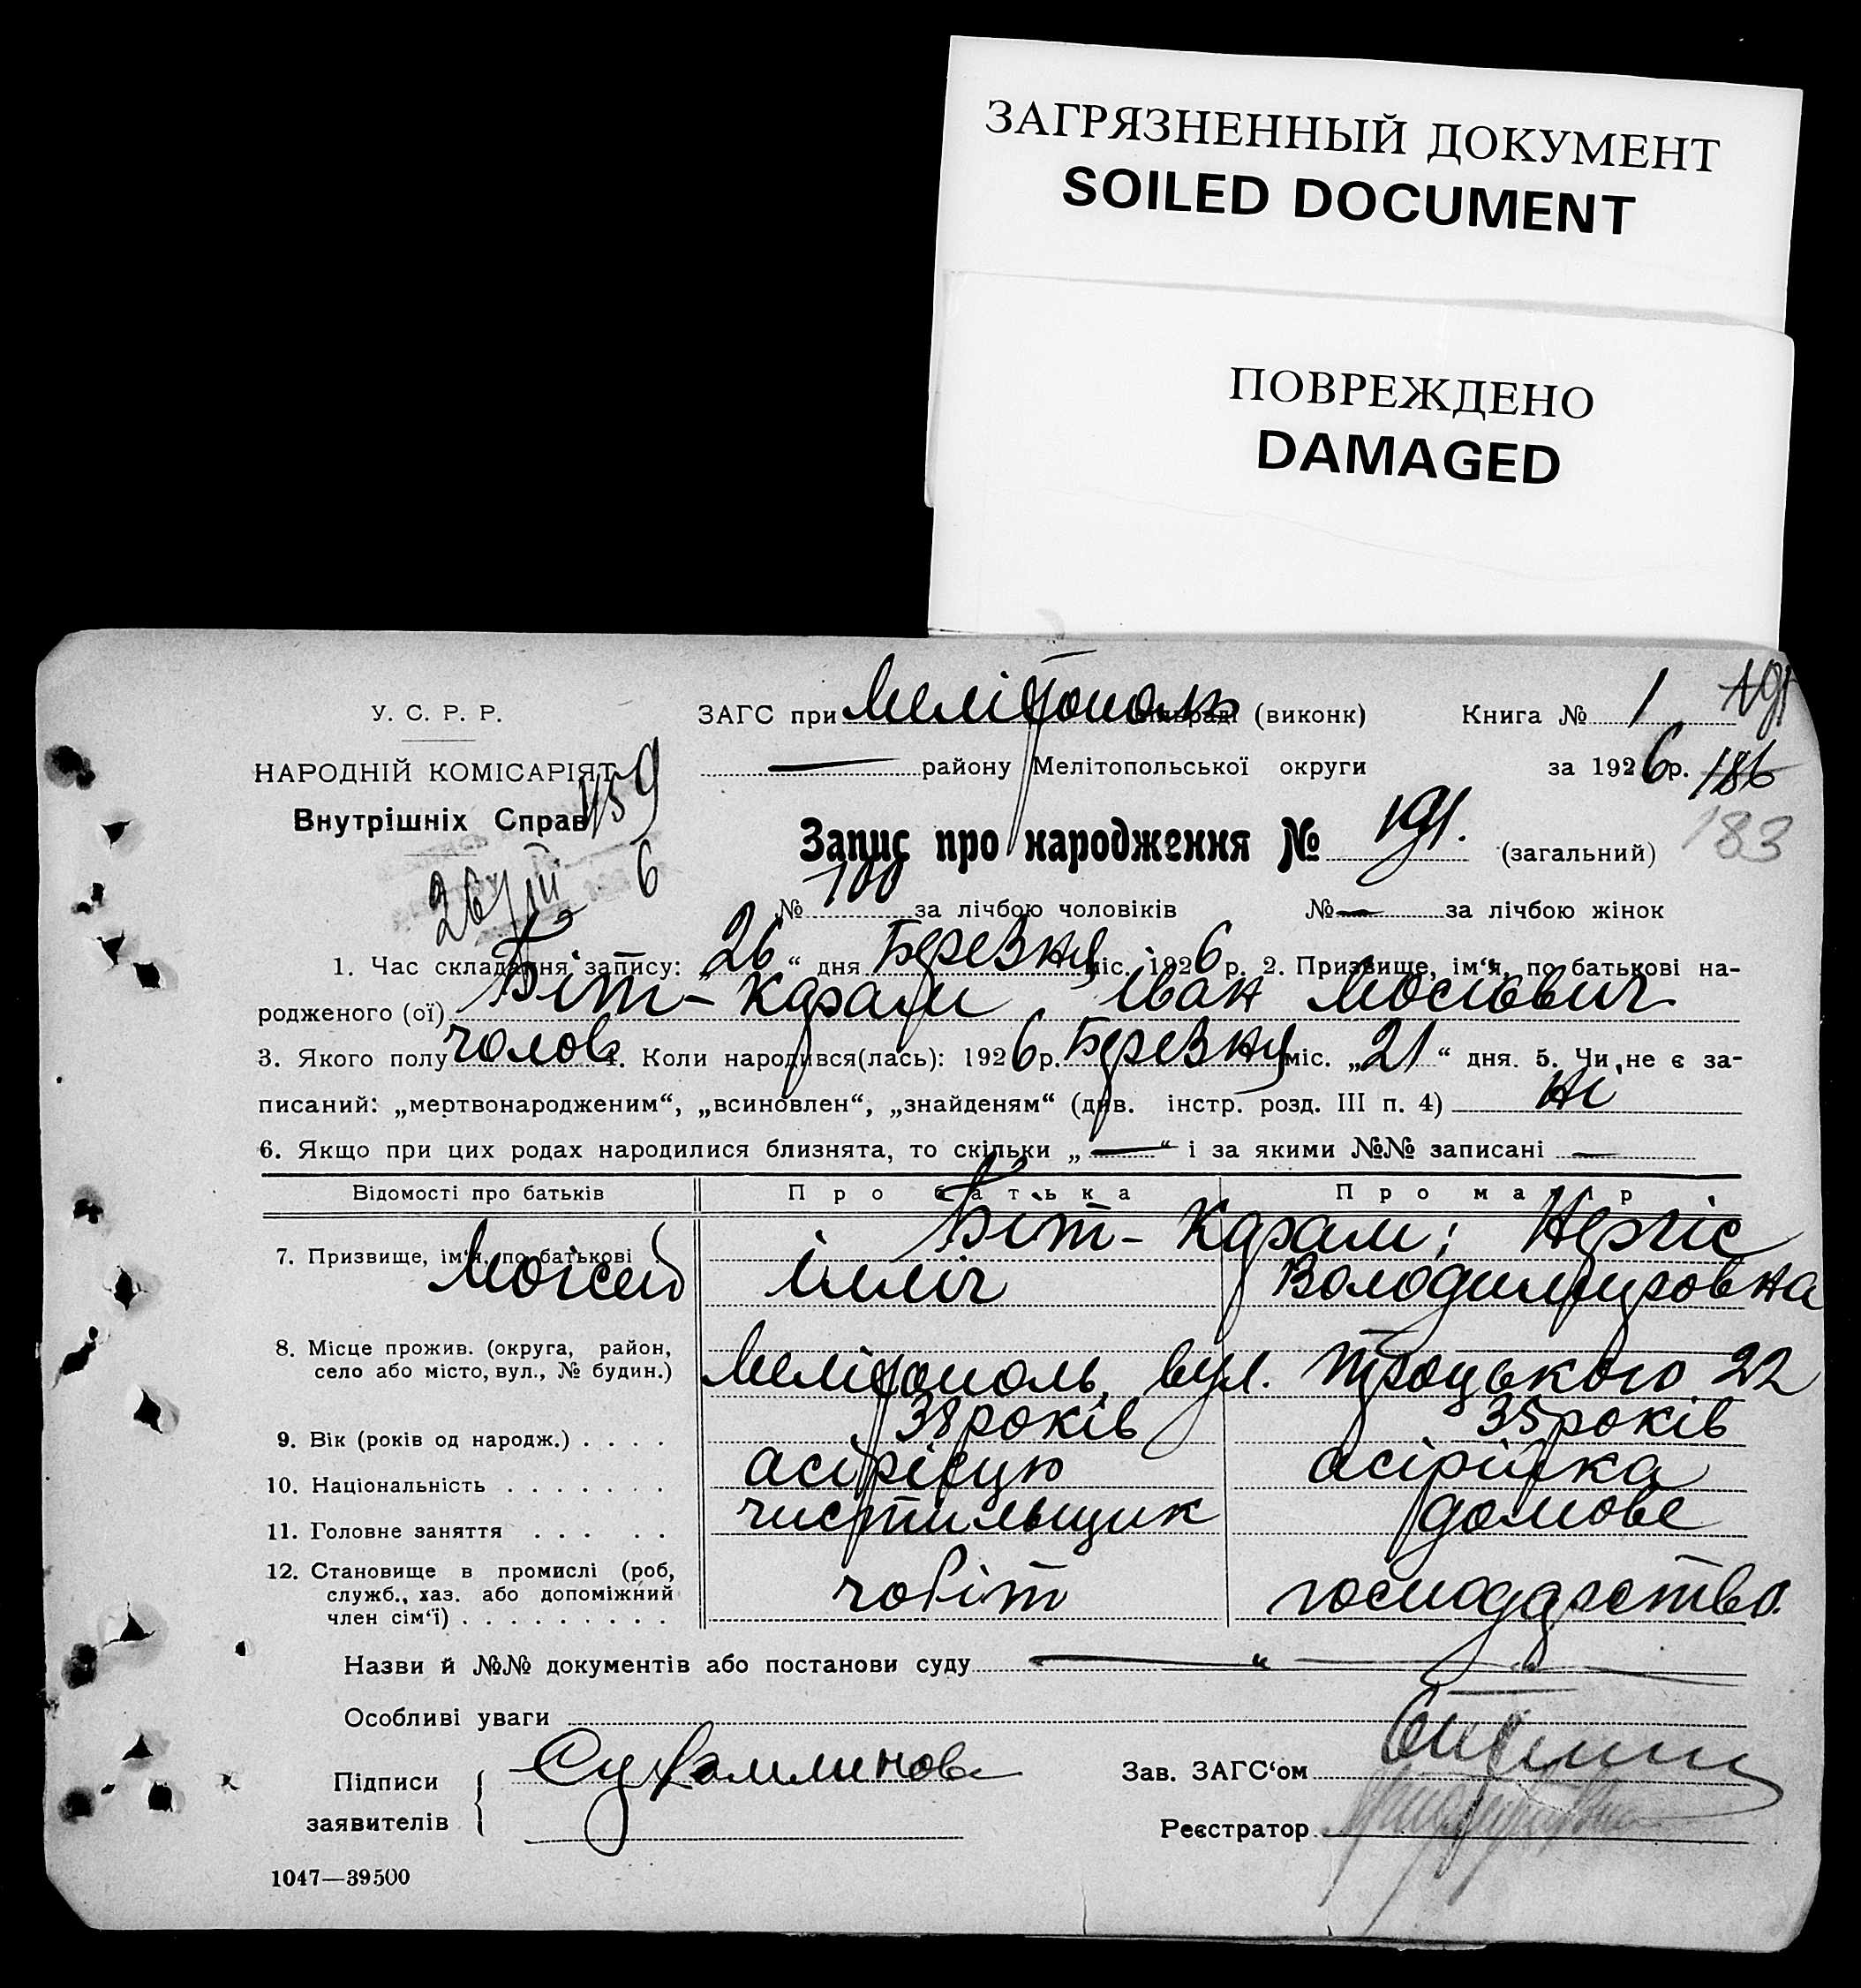 ЗАГРЯЗНЕННЫЙ ДОКУМЕНТ
SOILED DOCUMENT
ПОВРЕЖДЕНО
DAMAGED
У. С. Р. Р.
НАРОДНІЙ КОМІСАРІЯТ
Внутрішніх Справ
1159
26/III 6
ЗАГС при Мелітополь (виконк) Книга № 1 191
— району Мелітопольської округи за 1926 р. 186
Запис про народження № 191. (загальний) 183
№ 100 за лічбою чоловіків № — за лічбою жінок
1. Час складання запису: „26“ дня Березня міс. 1926 р. 2. Призвище, ім‘я, по батькові на-
родженого (ої) Біт-Карам Іван Мосієвич
3. Якого полу чолов 4. Коли народився(лась): 1926 р. Березня міс. „21“ дня. 5. Чи не є за-
писаний: „мертвонародженим“, „всиновлен“, „знайденям“ (див. інстр. розд. III п. 4) ні
6. Якщо при цих родах народилися близнята, то скільки „—“ і за якими №№ записані —
Відомості про батьків Про батька Про матір
7. Призвище, ім‘я, по батькові Біт-Карам; Нергіс
Мойсей Ілліч Володимировна
8. Місце прожив. (округа, район,
село або місто, вул., № будин.) Мелітополь, вул. Троцького 22
9. Вік (років од народж.) . . . . 38 років 35 років
10. Національність . . . . . . . асірієць асірійка
11. Головне заняття . . . . . чистильщик домове
12. Становище в промислі (роб,
служб., хаз. або допоміжний
член сім‘ї) . . . . . . . . . чобіт господарство.
Назви й №№ документів або постанови суду — „ —
Особливі уваги
Підписи
заявителів
Зав. ЗАГС‘ом
Реєстратор
1047—39500